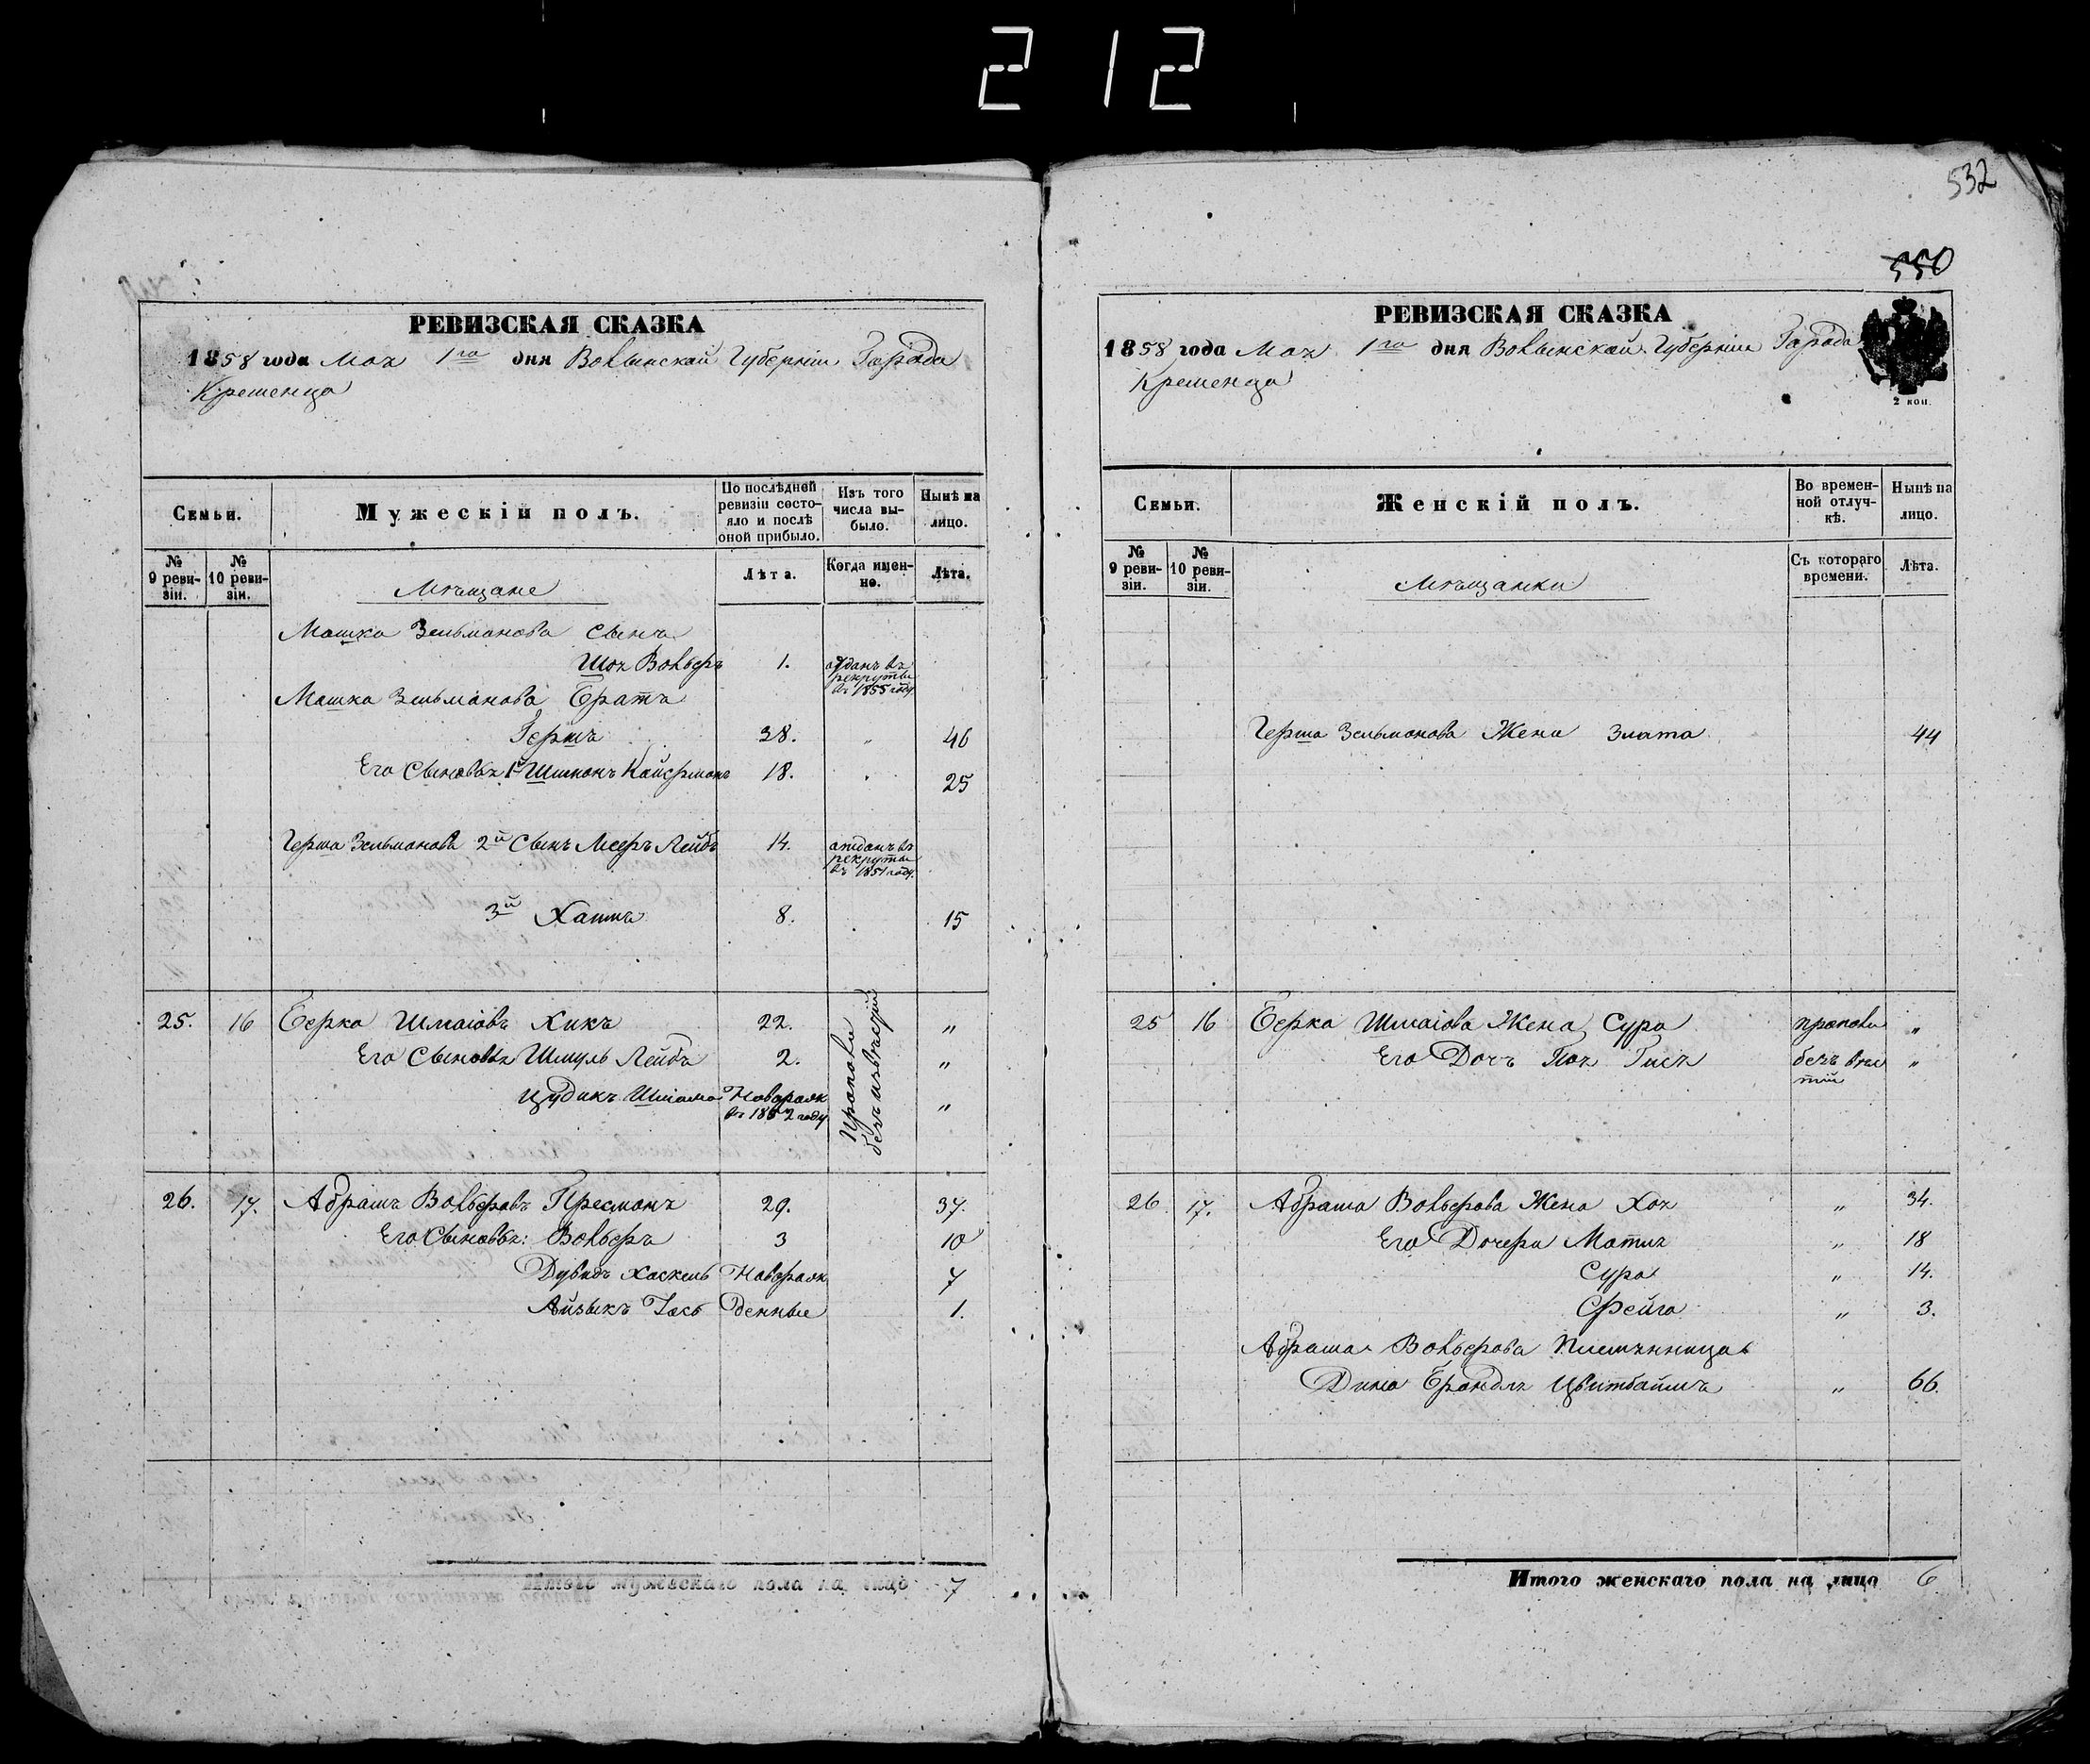 212
532
550
РЕВИЗСКАЯ СКАЗКА
1858 года Мая 1го дня Волынской Губерніи Города
Кременца
Семьи.
Мужескій полъ.
По послѣдней ревизіи состояло и послѣ оной прибыло.
Изъ того числа выбыло.
Нынѣ на лицо.
№ 9 ревизіи.
№ 10 ревизіи.
Мѣщане
Лѣта.
Когда именно.
Лѣта.
Мошка Зельманова сынъ
Шоя Вольферъ 1. отданъ въ рекруты въ 1855 году
Мошка Зельманова Братъ
Гершъ 38. " 46
Его Сыновья 1й Шимонъ Кайфманъ 18. " 25
Герша Зельманова 2й Сынъ Мееръ Лейбъ 14. отданъ въ рекруты въ 1851 году.
3й Хаимъ 8. 15
25. 16 Берко Шмаіовъ Кикъ 22. Пропали безъ извѣстій "
Его Сыновья Шмуль Лейбъ 2. "
Цудикъ Шліома Новорожд въ 1852 году "
26. 17. Абрамъ Вольферовъ Пресманъ 29. 37.
Его Сыновья: Вольферъ 3 10
Дувидъ Хаскель Неворож 7
Айзыкъ Іось денные 1.
Итого мужескаго пола на лицо 7
РЕВИЗСКАЯ СКАЗКА
1858 года Мая 1го дня Волынской Губерніи Города
Кременца
2 коп.
Семьи.
Женскій полъ.
Во временной отлучкѣ.
Нынѣ на лицо.
№ 9 ревизіи.
№ 10 ревизіи.
Мѣщанки
Съ котораго времени.
Лѣта.
Герша Зельманова Жена Злата 44
25 16 Берка Шмаіова Жена Сура пропали "
Его Дочь Пая Гися безъ вѣстій "
26. 17. Абрама Вольферова Жена Хая " 34.
Его Дочери Матля " 18
Сура " 14.
Фейга " 3.
Абрама Вольферова Племянница
Дина Брандля " 66.
Итого женскаго пола на лицо 6